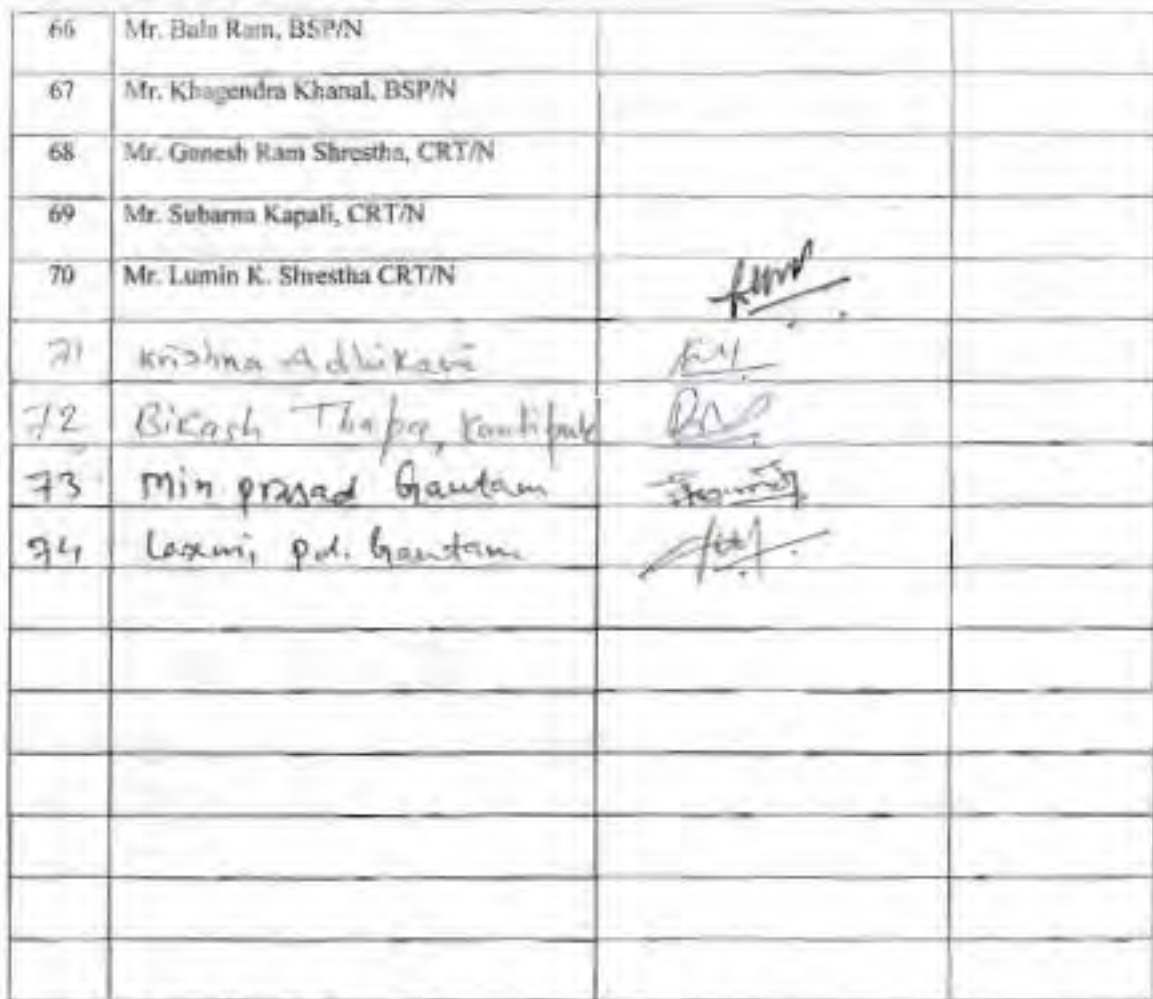 66 Mr. Bala Ram, BSP/N
67 Mr. Khagendra Khanal, BSP/N
68 Mr. Ganesh Ram Shrestha, CRT/N
69 Mr. Subarna Kapali, CRT/N
70 Mr. Lumin K. Shrestha CRT/N
71 Krishna Adhikari
72 Bikash Thapa,
73 Min prasad Gautam
74 Laxmi pd. Gautam